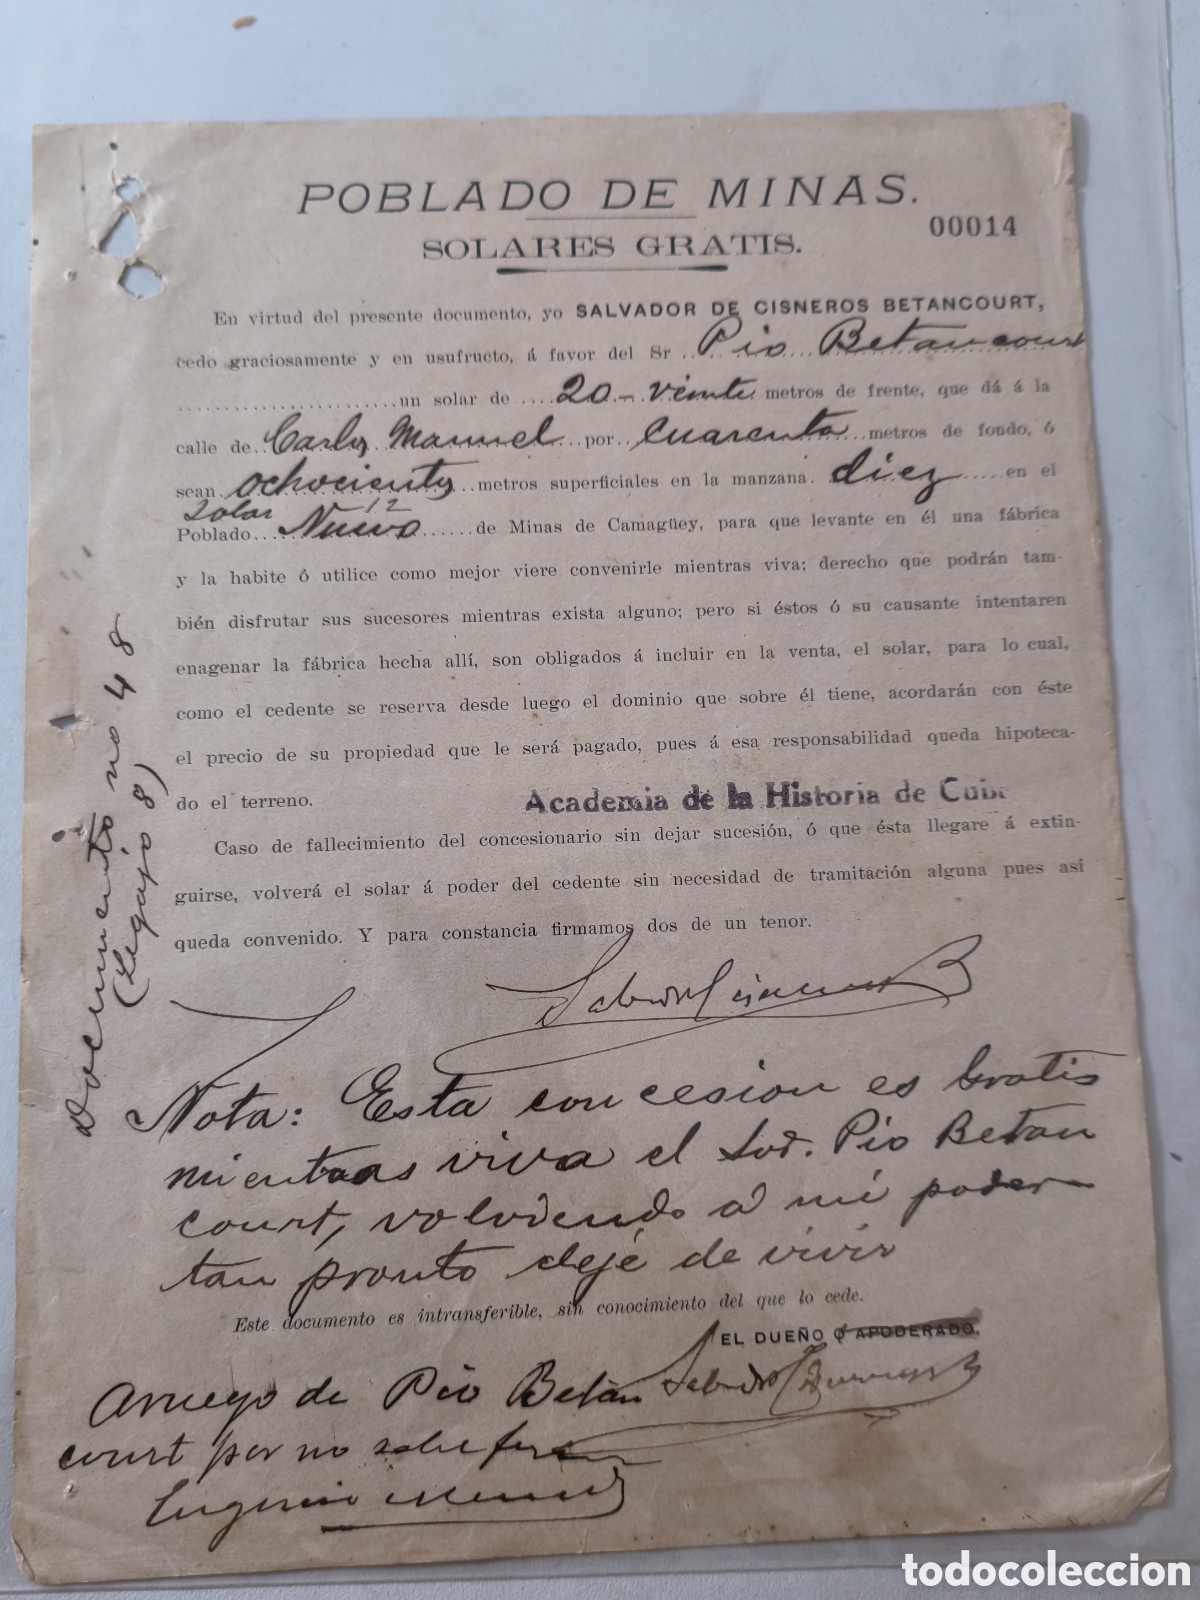 POBLADO DE MINAS.
00014
SOLARES GRATIS.
En virtud del presente documento, yo SALVADOR DE CISNEROS BETANCOURT,
cedo graciosamente y en usufructo, á favor del Sr. Pio Betancourt
un solar de 20 - veinte metros de frente, que dá á la
calle de Carlos Manuel por cuarenta metros de fondo, ó
sean ochocientos metros superficiales en la manzana diez en el
solar 12
Poblado Nuevo de Minas de Camagüey, para que levante en él una fábrica
y la habite ó utilice como mejor viere convenirle mientras viva; derecho que podrán tam-
bién disfrutar sus sucesores mientras exista alguno; pero si éstos ó su causante intentaren
enagenar la fábrica hecha allí, son obligados á incluir en la venta, el solar, para lo cual,
como el cedente se reserva desde luego el dominio que sobre él tiene, acordarán con éste
el precio de su propiedad que le será pagado, pues á esa responsabilidad queda hipoteca-
do el terreno.
Academia de la Historia de Cuba
Caso de fallecimiento del concesionario sin dejar sucesión, ó que ésta llegare á extin-
guirse, volverá el solar á poder del cedente sin necesidad de tramitación alguna pues así
queda convenido. Y para constancia firmamos dos de un tenor.
Salvador Cisneros B
Nota: Esta concesion es Gratis
mientras viva el Sor. Pio Betan
court, volviendo a mi poder
tan pronto deje de vivir
Este documento es intransferible, sin conocimiento del que lo cede.
EL DUEÑO Ó APODERADO.
Salvador Cisneros B
Arruego de Pio Betan
court por no saber firmar
Eugenio
Documento no 48
(Legajo 8)
todocoleccion